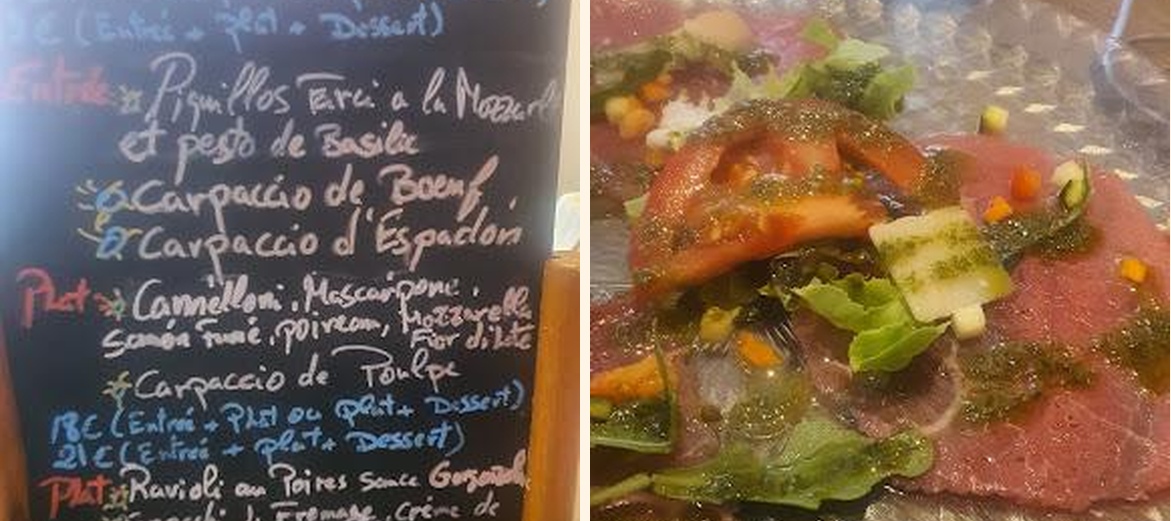 € (Entrée + plat + Dessert)
Entrée Piquillos Farci a la Mozzarell
et pesto de Basilic
Carpaccio de Boeuf
Carpaccio d'Espadon
Plat Cannelloni, Mascarpone,
Samon Fumé, poireau, Mozzarella
Fior di Late
Carpaccio de Poulpe
18€ (Entrée + Plat ou plat + Dessert)
21€ (Entrée + plat + Dessert)
Plat Ravioli au Poires Sauce Gorgonzol
Fromage, Crème de